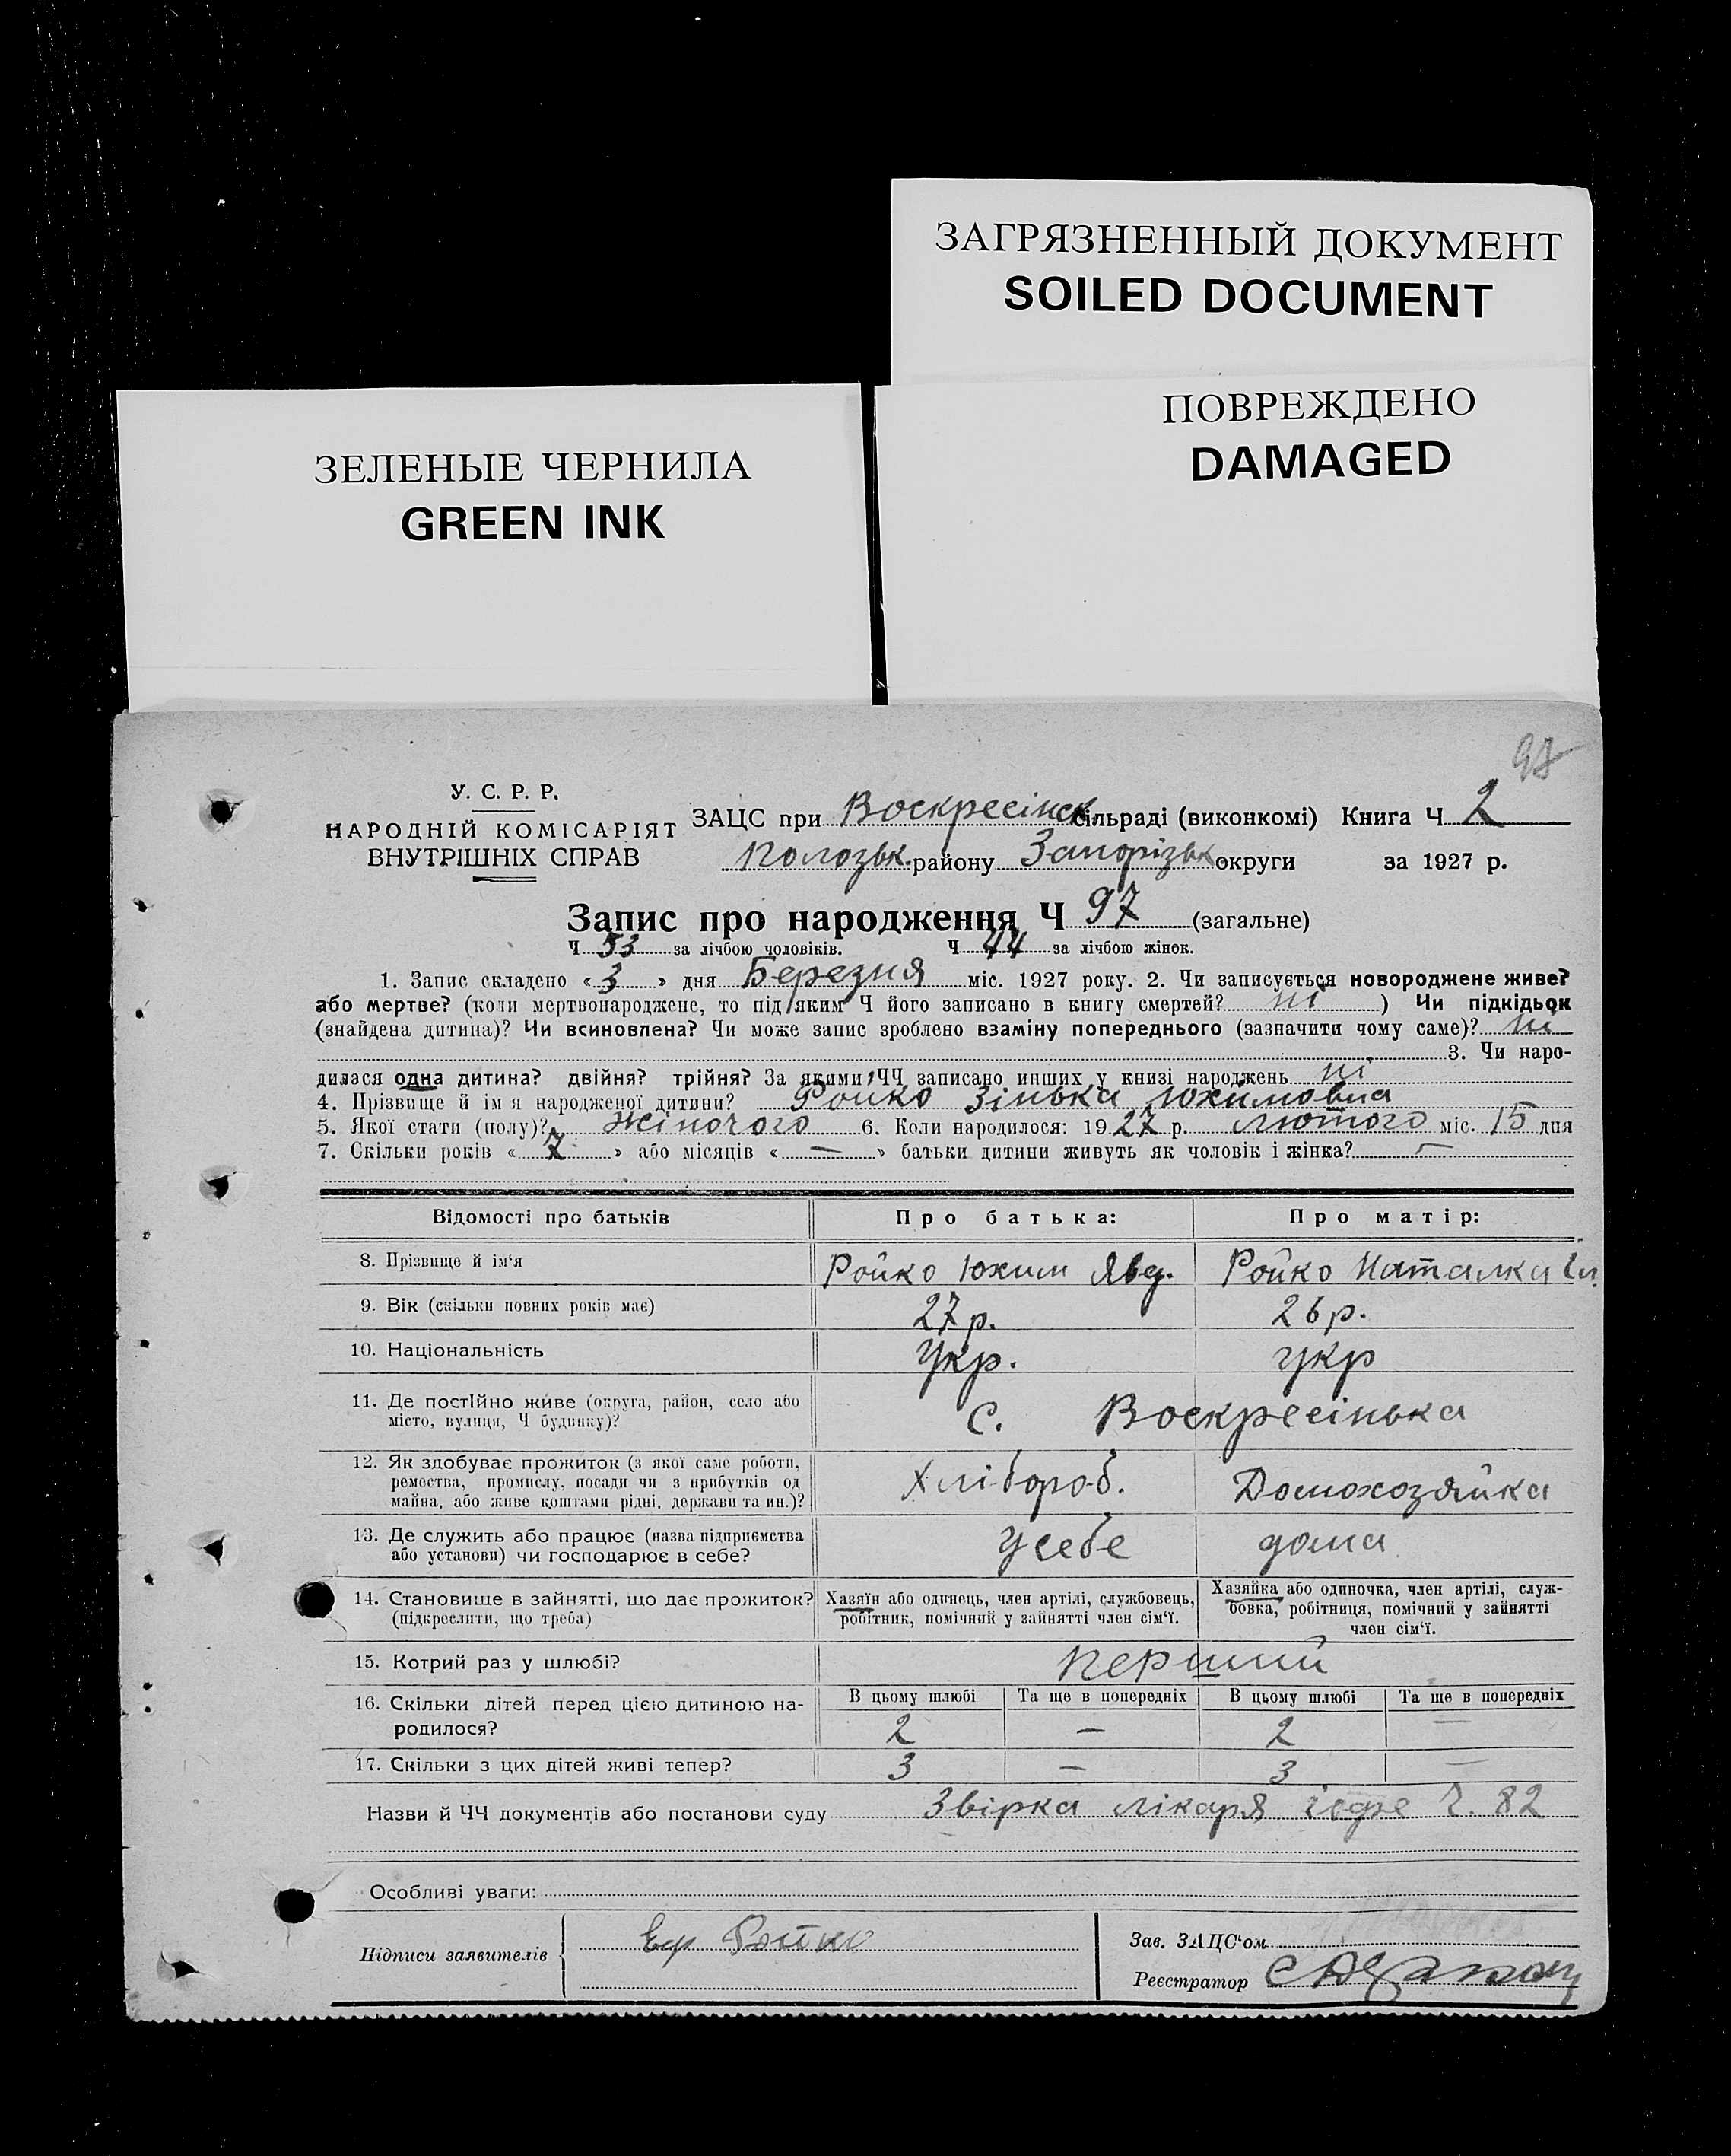 ЗАГРЯЗНЕННЫЙ ДОКУМЕНТ
SOILED DOCUMENT
ПОВРЕЖДЕНО
DAMAGED
ЗЕЛЕНЫЕ ЧЕРНИЛА
GREEN INK
97
У. С. Р. Р.
НАРОДНІЙ КОМІСАРІЯТ
ВНУТРІШНІХ СПРАВ
ЗАЦС при Воскресінск. сільраді (виконкомі) Книга Ч 2
Пологівськ. району Запорізьк. округи за 1927 р.
Запис про народження Ч 97 (загальне)
Ч 53 за лічбою чоловіків. Ч 44 за лічбою жінок.
1. Запис складено «3» дня Березня міс. 1927 року. 2. Чи записується новороджене живе?
або мертве? (коли мертвонароджене, то під яким Ч його записано в книгу смертей? ні) Чи підкідьок
(знайдена дитина)? Чи всиновлена? Чи може запис зроблено взаміну попереднього (зазначити чому саме)? ні
3. Чи наро-
дилася одна дитина? двійня? трійня? За якими ЧЧ записано инших у книзі народжень ні
4. Прізвище й ім я народженої дитини? Ройко Зінька Юхимовна
5. Якої стати (полу)? Жіночого 6. Коли народилося: 1927 р. Лютого міс. 15 дня
7. Скільки років «7» або місяців «—» батьки дитини живуть як чоловік і жінка? —
Відомості про батьків Про батька: Про матір:
8. Прізвище й ім'я Ройко Юхим Явд. Ройко Наталка
9. Вік (скільки повних років має) 27 р. 26 р.
10. Національність Укр. укр
11. Де постійно живе (округа, район, село або
місто, вулиця, Ч будинку)? С. Воскресінька
12. Як здобуває прожиток (з якої саме роботи,
ремества, промислу, посади чи з прибутків од
майна, або живе коштами рідні, держави та ин.)? Хлібороб. Домохозяйка
13. Де служить або працює (назва підприємства
або установи) чи господарює в себе? У себе дома
14. Становище в зайнятті, що дає прожиток?
(підкреслити, що треба)
Хазяїн або одинець, член артілі, службовець,
робітник, помічний у зайнятті член сім'ї.
Хазяйка або одиночка, член артілі, служ-
бовка, робітниця, помічний у зайнятті
член сім'ї.
15. Котрий раз у шлюбі? Перший
16. Скільки дітей перед цією дитиною на-
родилося?
В цьому шлюбі Та ще в попередніх В цьому шлюбі Та ще в попередніх
2 — 2 —
17. Скільки з цих дітей живі тепер? 3 — 3 —
Назви й ЧЧ документів або постанови суду Звірка лікаря Ч. 82
Особливі уваги:
Підписи заявителів Ройко
Зав. ЗАЦС'ом
Реєстратор